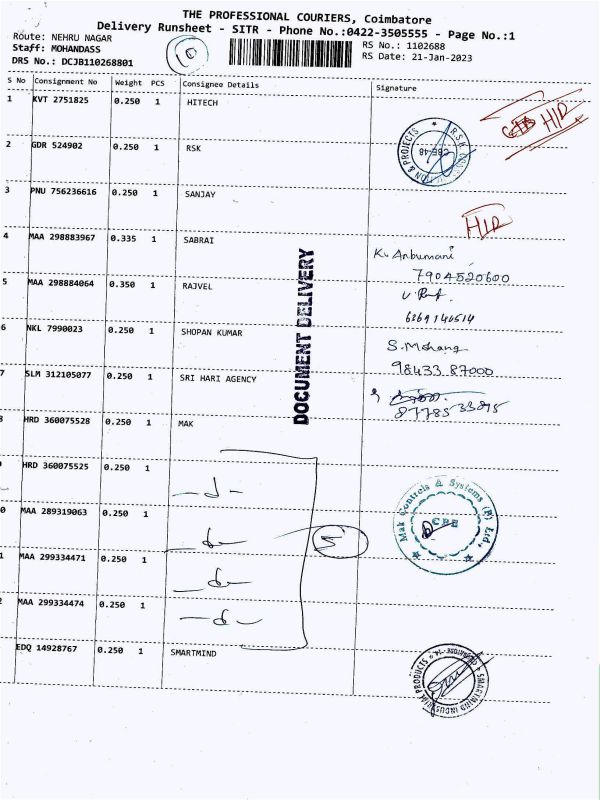 THE PROFESSIONAL COURIERS, Coimbatore
Delivery Runsheet - SITR - Phone No.:0422-3505555 - Page No.:1
Route: NEHRU NAGAR
Staff: MOHANDASS
DRS No.: DCJB110268801
10
RS No.: 1102688
RS Date: 21-Jan-2023
S No Consignment No Weight PCS Consignee Details Signature
1 KVT 2751825 0.250 1 HITECH
HID
2 GDR 524902 0.250 1 RSK
R.S.K & PROJECTS CBE-48
3 PNU 756236616 0.250 1 SANJAY
HID
4 MAA 298883967 0.335 1 SABRAI
K. Anbumani
7904520600
5 MAA 298884064 0.350 1 RAJVEL
6369146514
6 NKL 7990023 0.250 1 SHOPAN KUMAR
S. Mohang
98433 87000
7 SLM 312105077 0.250 1 SRI HARI AGENCY
87785 33895
DOCUMENT DELIVERY
HRD 360075528 0.250 1 MAK
HRD 360075525 0.250 1
0 MAA 289319063 0.250 1
5
Mak Controls & Systems (P) Ltd. CBE
1 MAA 299334471 0.250 1
2 MAA 299334474 0.250 1
EDQ 14928767 0.250 1 SMARTMIND
SMARTMIND INDUSTRIAL PRODUCTS